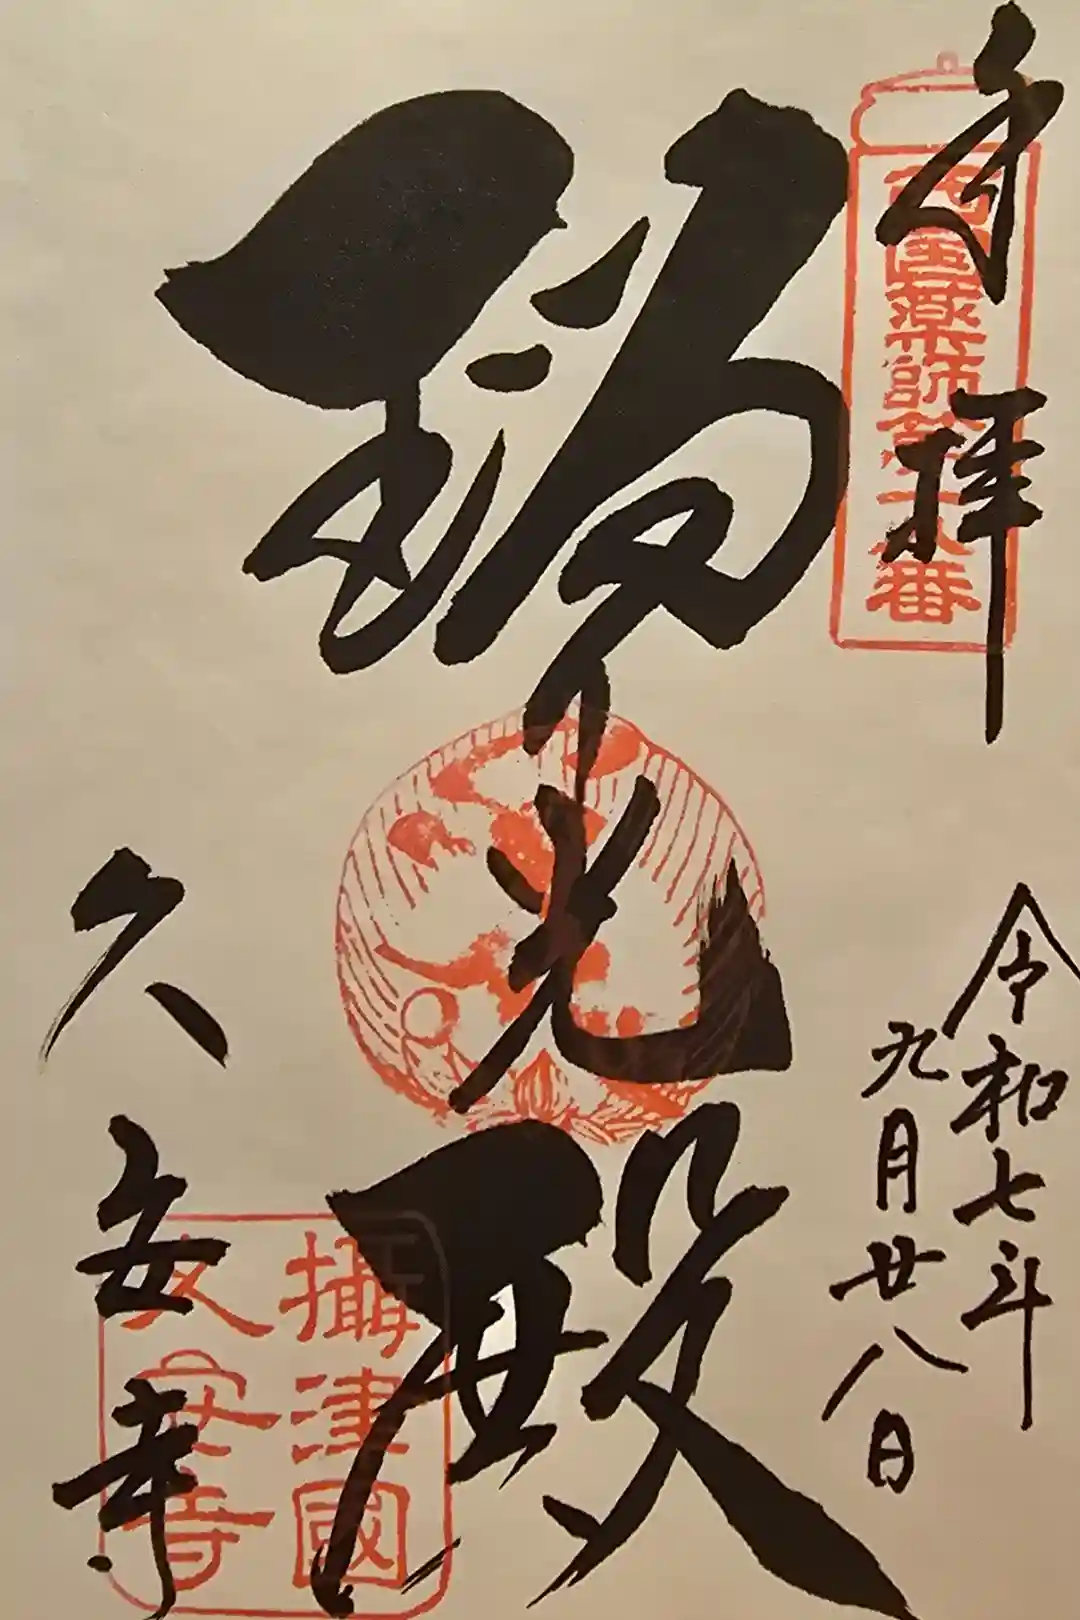 奉拝
西国薬師第十八番
令和七年
九月廿八日
瑠璃光殿
久安寺
攝津國
久安寺